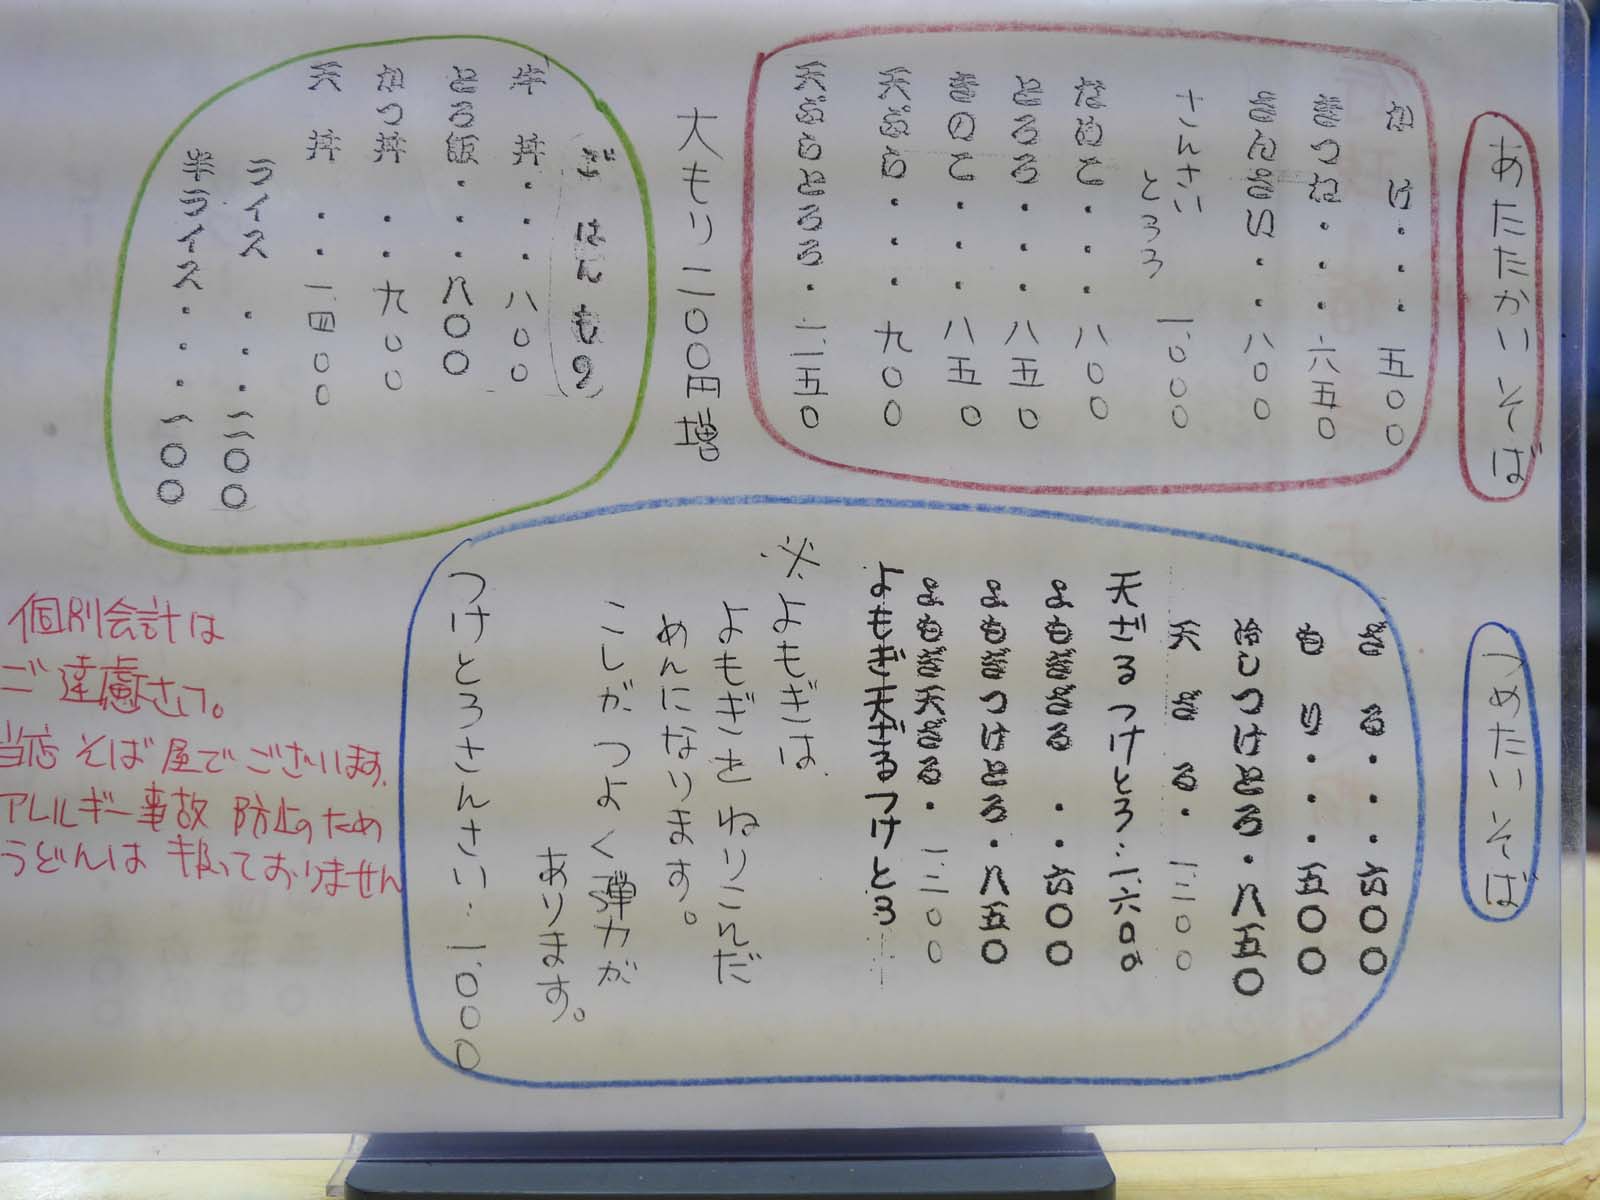 あたたかいそば
かけ・・・五〇〇
きつね・・・六五〇
さんさい・・八〇〇
さんさい
とろろ
一、〇〇〇
なめこ・・・八〇〇
とろろ・・・八五〇
きのこ・・・八五〇
天ぷら・・・九〇〇
天ぷらとろろ・一、一五〇
大もり二〇〇円増。
ごはんもの
牛丼・・・八〇〇
とろ飯・・・八〇〇
かつ丼・・九〇〇
天丼・・一、四〇〇
ライス・・・二〇〇
半ライス・・・一〇〇
つめたいそば
ざる・・・六〇〇
もり・・・五〇〇
冷しつけとろ・八五〇
天ざる・一、二〇〇
天ざるつけとろ・・・一、六〇〇
よもぎざる・・六〇〇
よもぎつけとろ・八五〇
よもぎ天ざる・一、二〇〇
よもぎ天ざるつけとろ
※よもぎは
よもぎをねりこんだ
めんになります。
こしがつよく弾力が
あります。
つけとろさんさい・・・一、〇〇〇
個別会計は
ご遠慮さい。
当店そば屋でございます。
アレルギー事故防止のため
うどんは扱っておりません